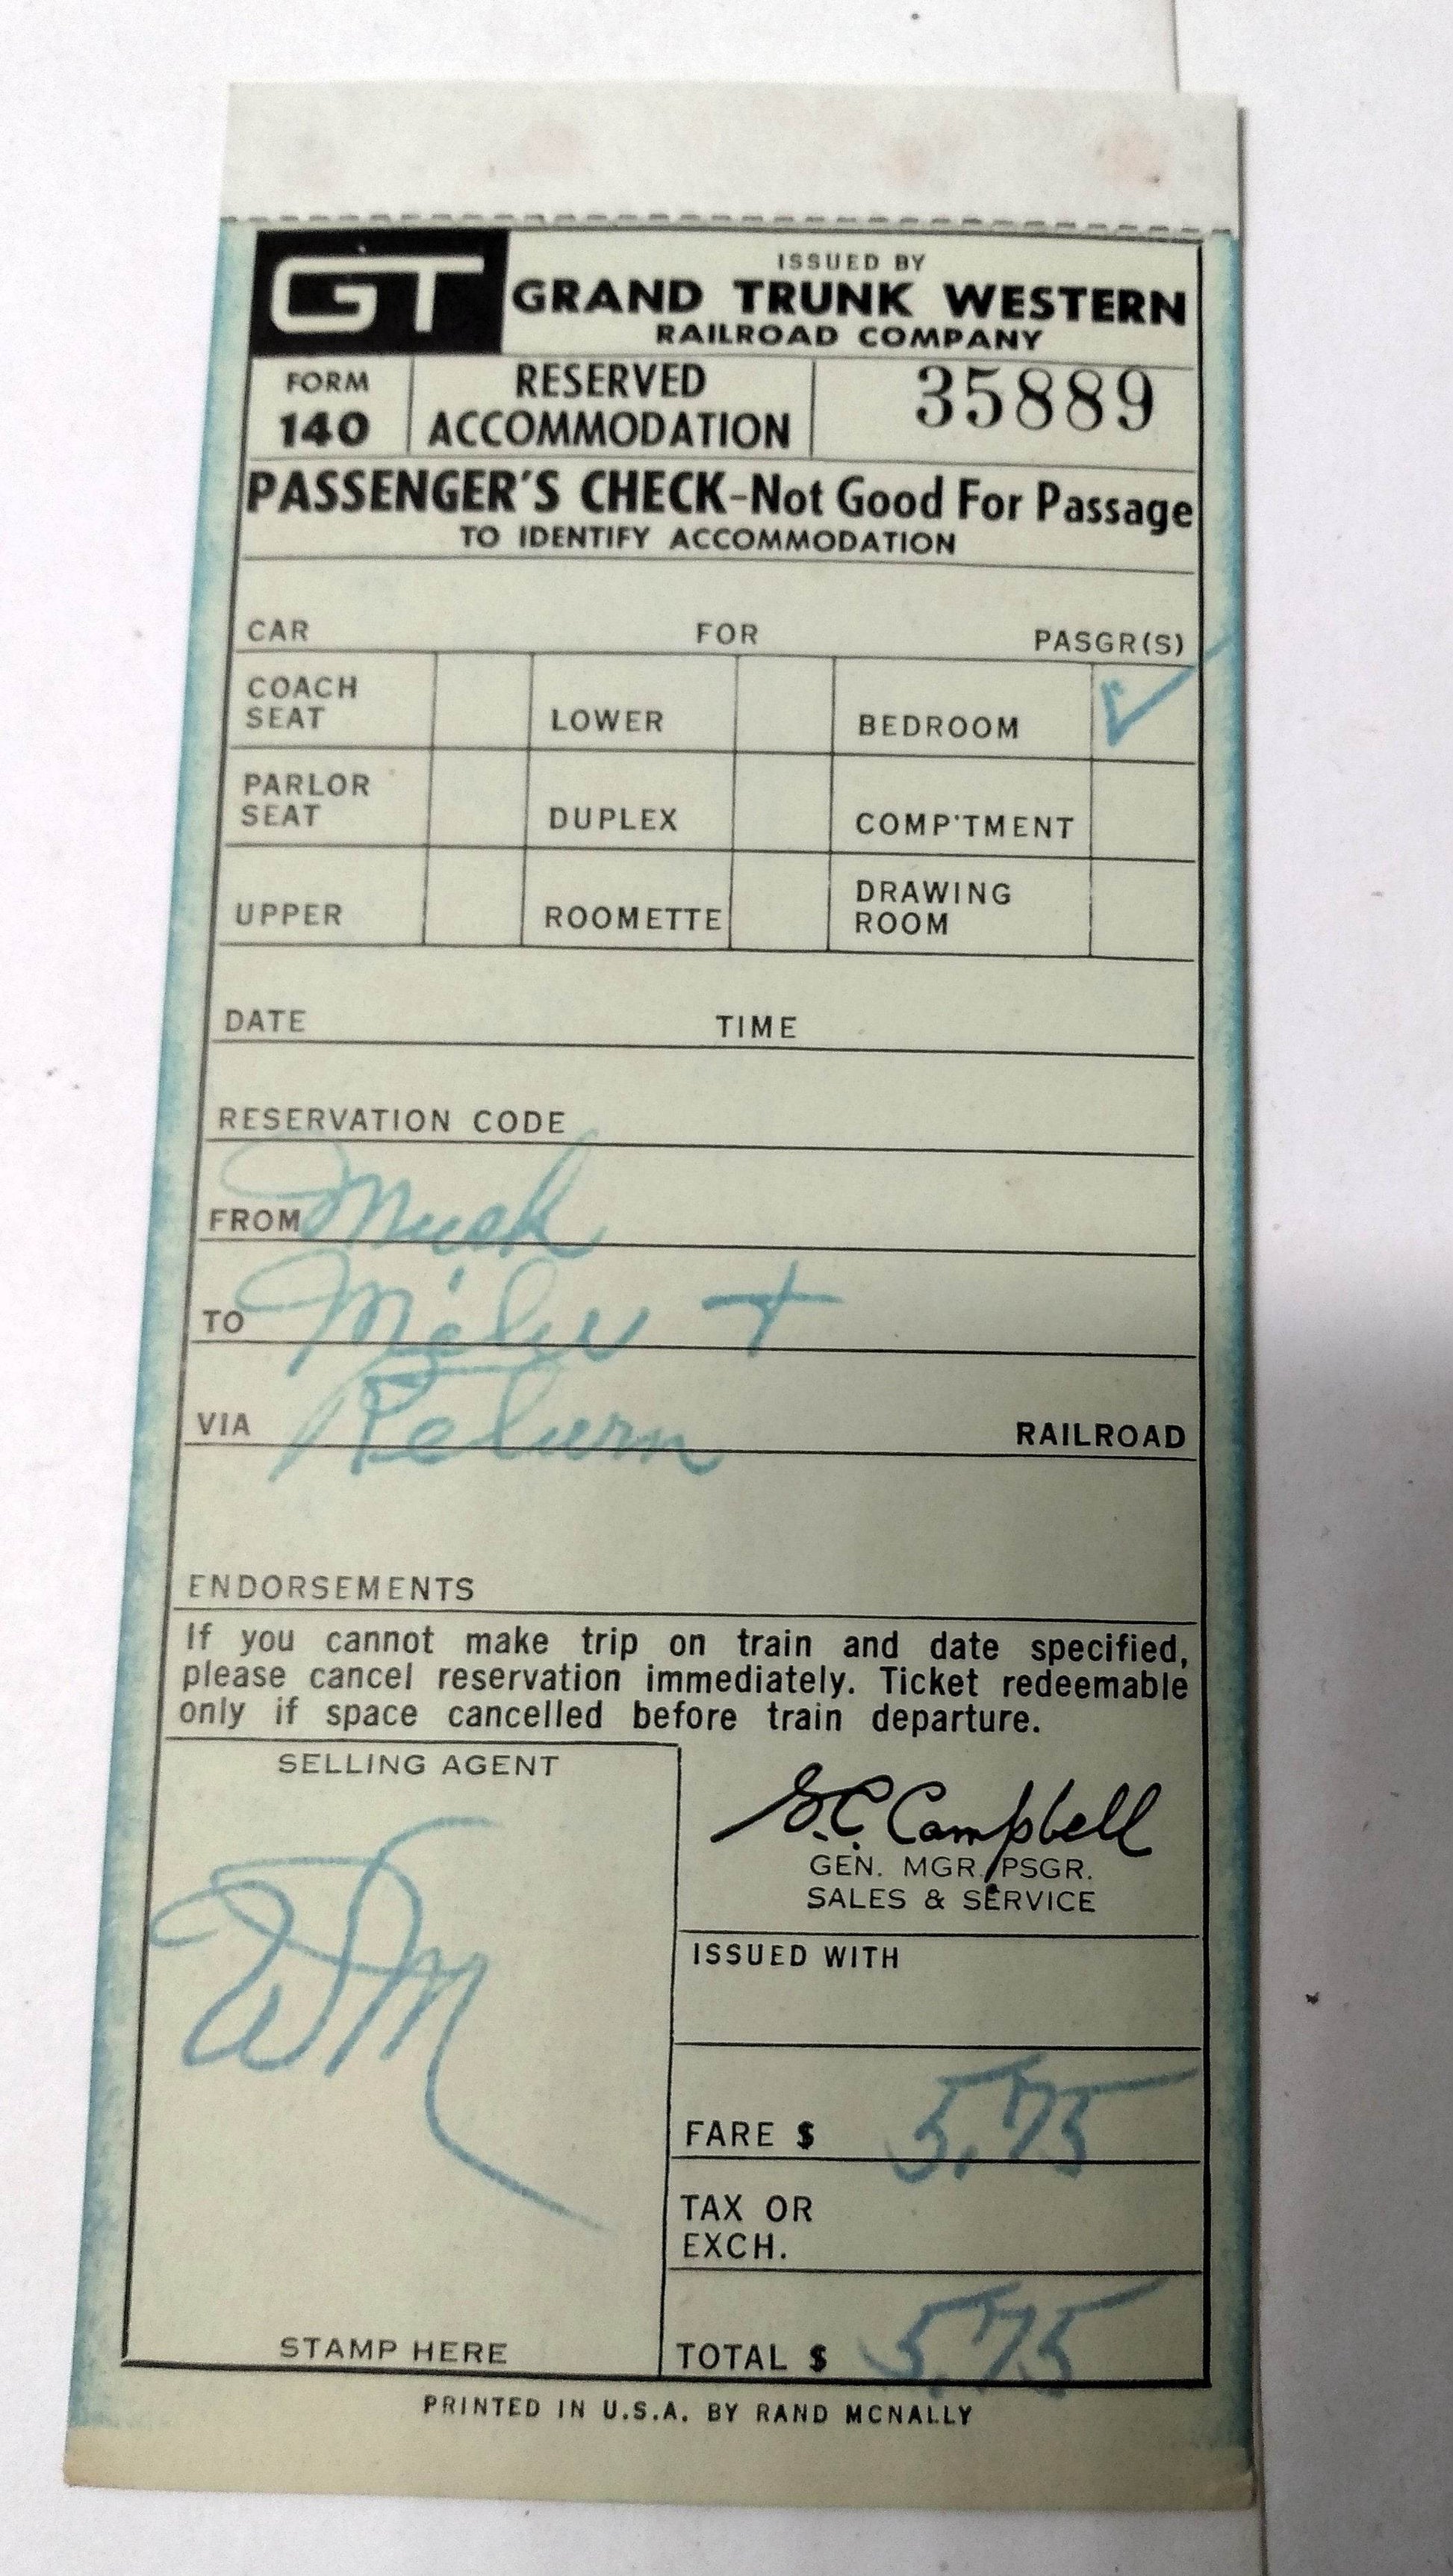 GT
ISSUED BY
GRAND TRUNK WESTERN
RAILROAD COMPANY
FORM 140
RESERVED ACCOMMODATION
35889
PASSENGER'S CHECK-Not Good For Passage
TO IDENTIFY ACCOMMODATION
CAR FOR PASGR(S)
COACH SEAT LOWER BEDROOM ✓
PARLOR SEAT DUPLEX COMP'TMENT
UPPER ROOMETTE DRAWING ROOM
DATE TIME
RESERVATION CODE
FROM Musk
TO Milw +
VIA Return RAILROAD
ENDORSEMENTS
If you cannot make trip on train and date specified,
please cancel reservation immediately. Ticket redeemable
only if space cancelled before train departure.
SELLING AGENT
G.C. Campbell
GEN. MGR. PSGR.
SALES & SERVICE
ISSUED WITH
FARE $ 5.75
TAX OR
EXCH.
STAMP HERE
TOTAL $ 5.75
PRINTED IN U.S.A. BY RAND MCNALLY